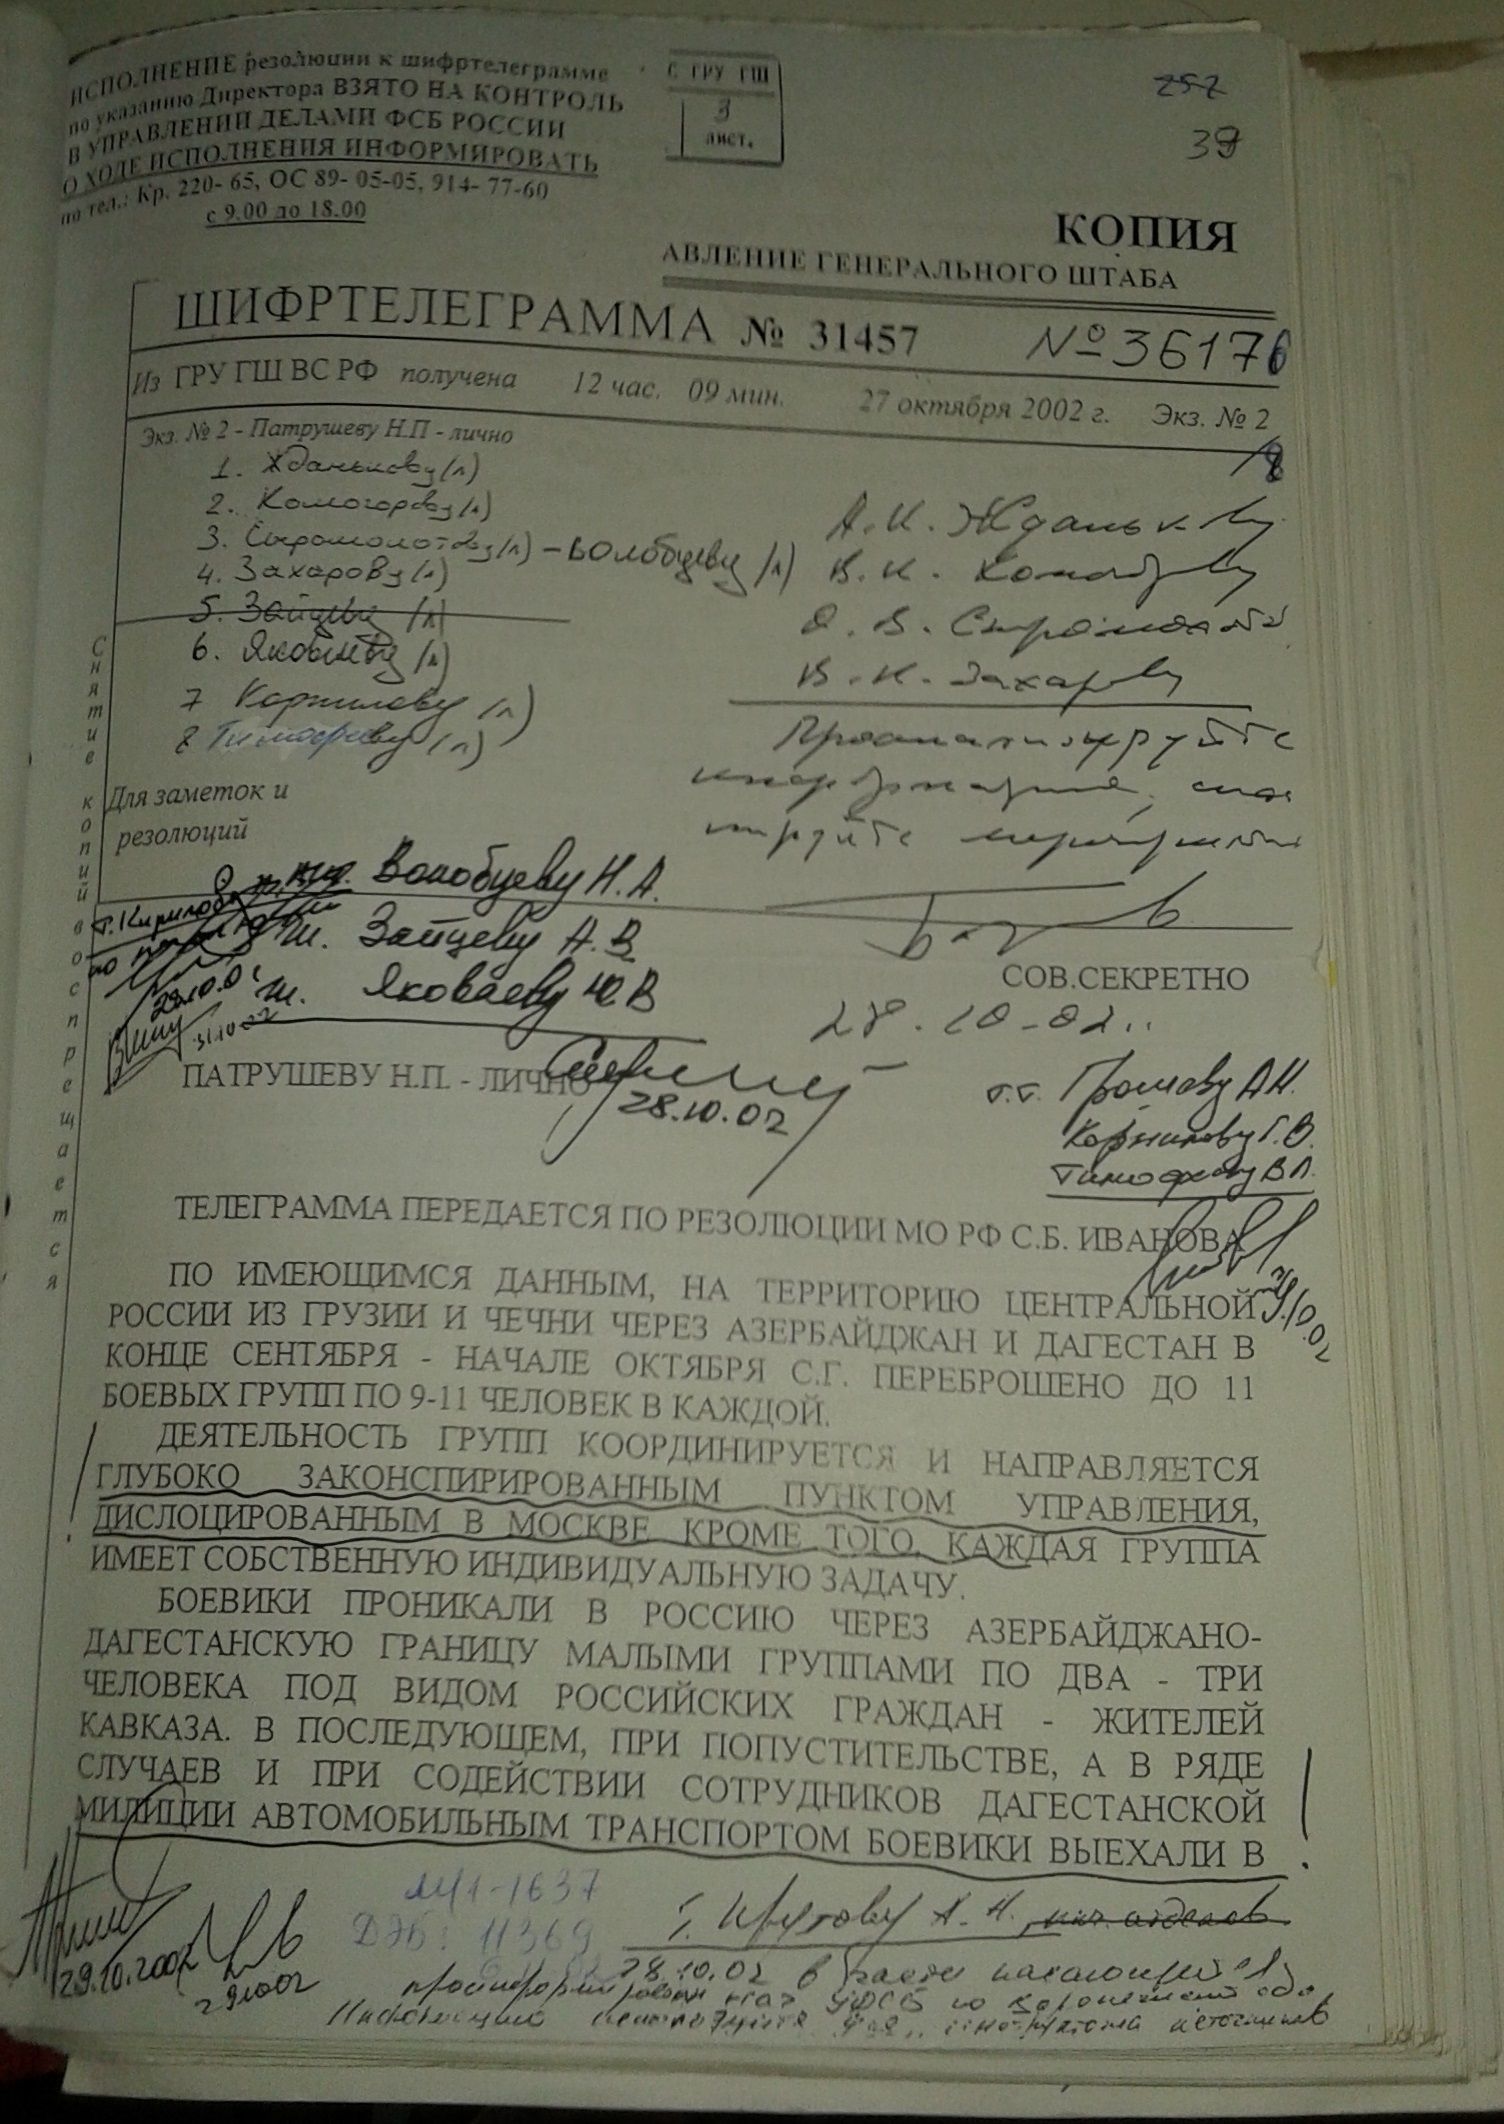 ИСПОЛНЕНИЕ резолюции к шифртелеграмме
по указанию Директора ВЗЯТО НА КОНТРОЛЬ
В УПРАВЛЕНИИ ДЕЛАМИ ФСБ РОССИИ
О ХОДЕ ИСПОЛНЕНИЯ ИНФОРМИРОВАТЬ
по тел.: Кр. 220- 65, ОС 89- 05-05, 914- 77-60
с 9.00 до 18.00
С ГРУ ГШ
3
лист.
257
39
КОПИЯ
АВЛЕНИЕ ГЕНЕРАЛЬНОГО ШТАБА
ШИФРТЕЛЕГРАММА № 31457 № 36176
Из ГРУ ГШ ВС РФ получена 12 час. 09 мин. 27 октября 2002 г. Экз. № 2
Экз. № 2 - Патрушеву Н.П - лично
1. Жданькову (л)
2. Комогорову (л)
3. Сыромолотову (л) – Волобуеву (л)
4. Захарову (л)
5. Зайцеву (л)
6. Яковлеву (л)
7 Корнилову (л)
8 Тимофееву (л)
А. И. Жданькову
В. И. Комогорову
О. В. Сыромолотову
В. И. Захарову
Проанализируйте
информацию,
Снятие копий воспрещается
Для заметок и
резолюций
Волобуеву Н. А.
Зайцеву А. В
Яковлеву Ю. В
29.10.02
31.10.02
СОВ.СЕКРЕТНО
28.10.02
ПАТРУШЕВУ Н.П. - ЛИЧНО
28.10.02
т.т. Громову А.Н.
Корнилову Г. В.
Тимофееву В Л.
ТЕЛЕГРАММА ПЕРЕДАЕТСЯ ПО РЕЗОЛЮЦИИ МО РФ С.Б. ИВАНОВА
ПО ИМЕЮЩИМСЯ ДАННЫМ, НА ТЕРРИТОРИЮ ЦЕНТРАЛЬНОЙ
РОССИИ ИЗ ГРУЗИИ И ЧЕЧНИ ЧЕРЕЗ АЗЕРБАЙДЖАН И ДАГЕСТАН В
КОНЦЕ СЕНТЯБРЯ - НАЧАЛЕ ОКТЯБРЯ С.Г. ПЕРЕБРОШЕНО ДО 11
БОЕВЫХ ГРУПП ПО 9-11 ЧЕЛОВЕК В КАЖДОЙ.
ДЕЯТЕЛЬНОСТЬ ГРУПП КООРДИНИРУЕТСЯ И НАПРАВЛЯЕТСЯ
ГЛУБОКО ЗАКОНСПИРИРОВАННЫМ ПУНКТОМ УПРАВЛЕНИЯ,
ДИСЛОЦИРОВАННЫМ В МОСКВЕ. КРОМЕ ТОГО, КАЖДАЯ ГРУППА
ИМЕЕТ СОБСТВЕННУЮ ИНДИВИДУАЛЬНУЮ ЗАДАЧУ.
БОЕВИКИ ПРОНИКАЛИ В РОССИЮ ЧЕРЕЗ АЗЕРБАЙДЖАНО-
ДАГЕСТАНСКУЮ ГРАНИЦУ МАЛЫМИ ГРУППАМИ ПО ДВА - ТРИ
ЧЕЛОВЕКА ПОД ВИДОМ РОССИЙСКИХ ГРАЖДАН - ЖИТЕЛЕЙ
КАВКАЗА. В ПОСЛЕДУЮЩЕМ, ПРИ ПОПУСТИТЕЛЬСТВЕ, А В РЯДЕ
СЛУЧАЕВ И ПРИ СОДЕЙСТВИИ СОТРУДНИКОВ ДАГЕСТАНСКОЙ
МИЛИЦИИ АВТОМОБИЛЬНЫМ ТРАНСПОРТОМ БОЕВИКИ ВЫЕХАЛИ В
29.10.2002
291002
1-1637
11369
28.10.02 в части